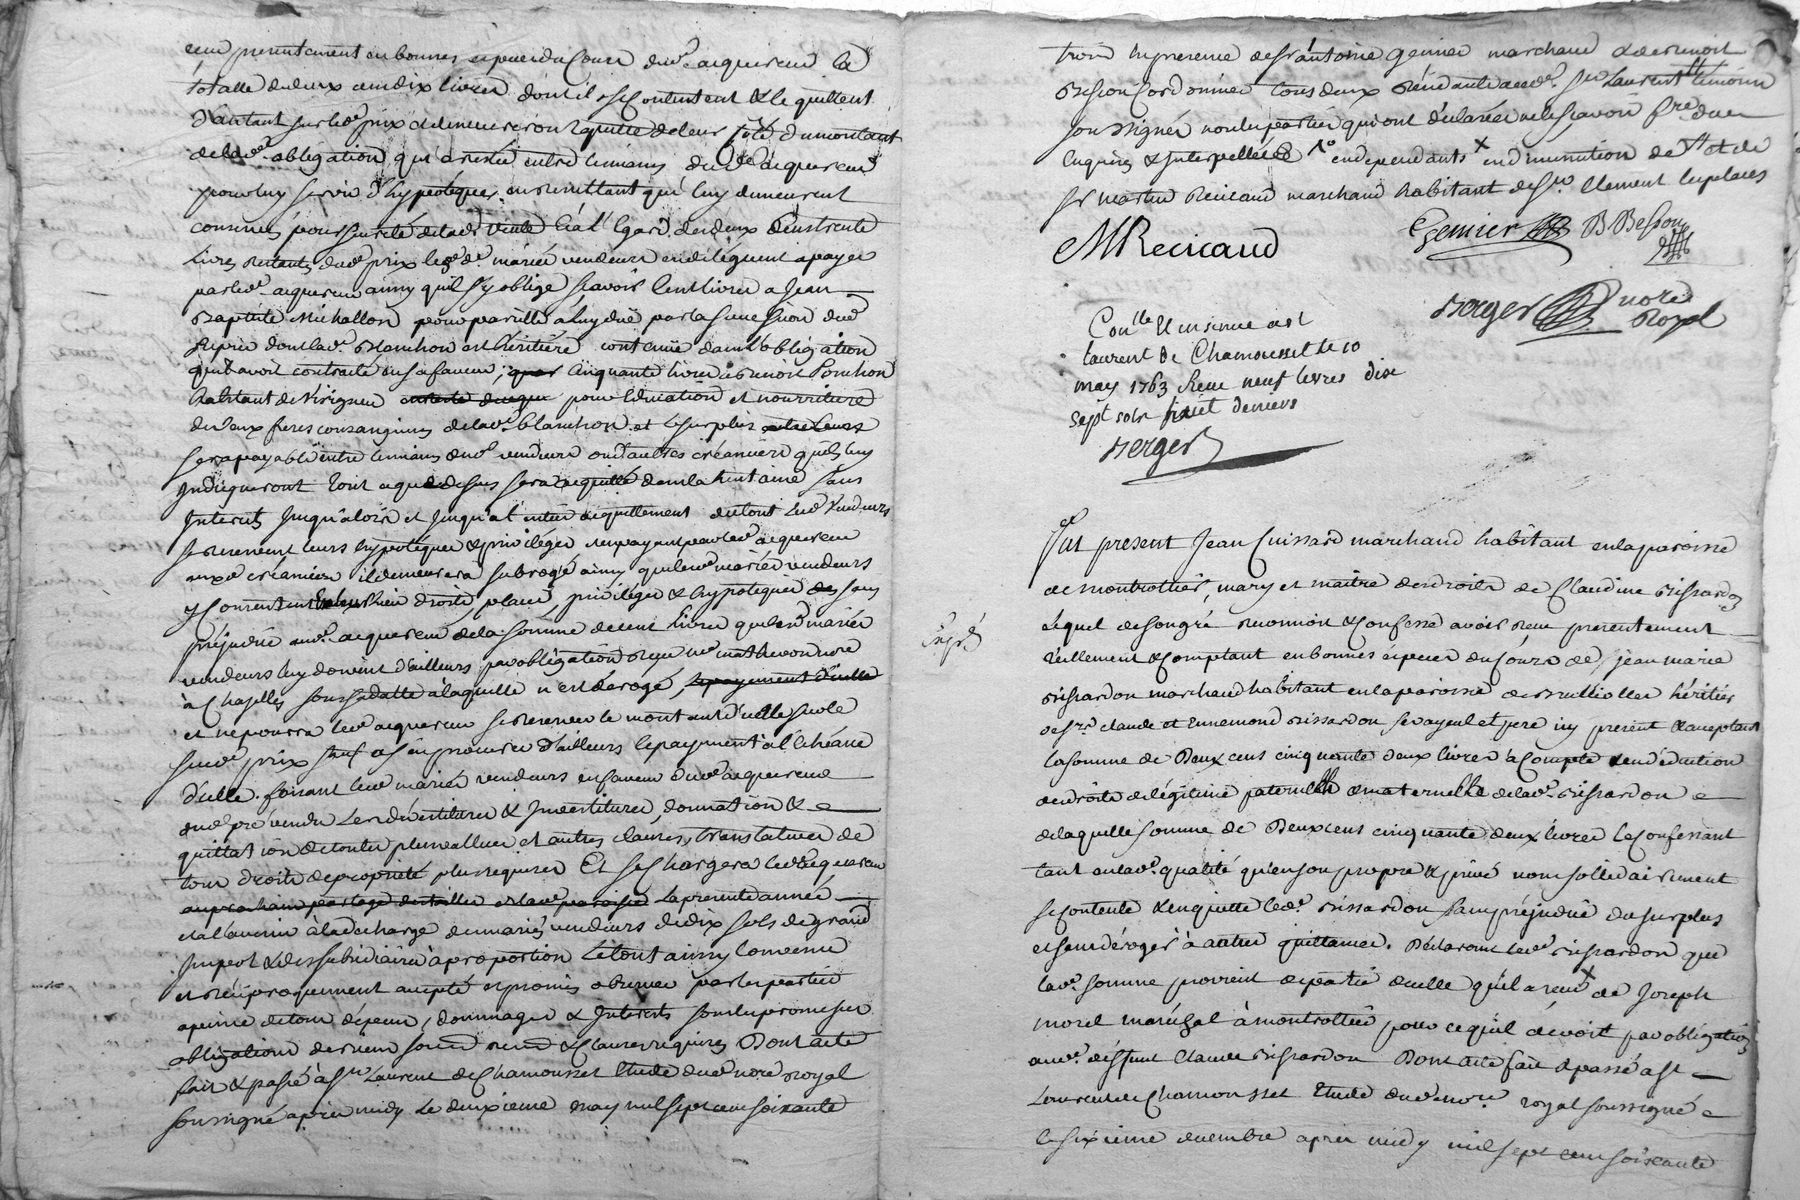 presentement en bonnes especes du Cours dud. acquereur la
totalle de deux cent dix livres dont ils se Contentent & le quittent
d'autant sur led. prix et demeureront quitte de leur côté du montant
de lad. obligation qui a restée entre les mains dud. acquereur
pour luy servir d'hypoteques en remettant qui luy demeurent
pour sureté de lad. vente Et à l'Egard des deux Cens trente
Livres restants dud. prix les d. mariés vendeurs en déleguent a payer
par led. acquereur ainsy qu'il s'y oblige scavoir Cent livres a Jean
Baptiste Michallon pour pareille a luy due par la
dont lad. Blanchon est héritière contenue dans l'obligation
qu'il avoit contracté en sa faveur, Cinquante livres à Benoit Ponchon
habitant de pour l'education et nourriture
de deux freres consanguins de lad. Blanchon et le surplus
sera payable entre les mains desd. vendeurs ou d'autres créanciers qu'ils luy
Indiqueront tout ce que dessus sera acquitté dans la huitaine sans
Interets jusqu'alors et jusqu'à l'entier acquittement du tout Lesd. Vendeurs
se reservent leurs hypoteques & privileges en payant par led. acquereur
auxd. créanciers il demeurera subrogé ainsy que lesd. mariés vendeurs
y Consentent droits, place, privileges & hypoteques sans
préjudice aud. acquereur de la somme de cent livres que lesd. mariés
vendeurs luy doivent d'ailleurs par obligation reçue Me Mathevon nore
à Chazelles sous sa datte à laquelle n'est dérogé,
et ne pourra led. acquereur se retenir le montant d'icelle sur le
susd. prix sauf a s'en procurer d'ailleurs le payement à l'échéance
d'icelle. faisant lesd. mariés vendeurs en faveur dud. acquereur
dud. pré vendu Les dévestitures & Investitures, donnation &
quittation de toutes plus vallues et autres clauses translatives de
tous droits de propriété plus requises Et se Chargera led. acquereur
la presente année
et a l'avenir à la décharge des mariés vendeurs de dix sols de grand
Impost & des subsidiaires à proportion Le tout ainsy convenu
et réciproquement accepté et promis observer par les parties
a peine de tous dépens, dommages & Interets sous les promesses
obligations de biens soumissions renonciations & Clauses requises Dont acte
fait & passé à St Laurent de Chamousset Etude dud. nore Royal
soussigné après midy Le deuxieme may mil sept cent soixante
trois En presence de Sr antoine Genier marchand & de Benoit
Besson Cordonnier tous deux résidants aud. St Laurent témoins
soussignés non les parties qui ont déclaré ne le scavoir fre de ce
Enquises & Interpellées en dependants x en diminution de
Sr martin Recicaud marchand habitant de St Clement les places
MRecicaud
Genier
B. Besson
Berger nore Royal
Conlle & insinué a St
laurent de Chamousset le 10
may 1763 Recu neuf livres dix
sept sols deniers
Berger
Expédié
Fut present Jean Cuissard marchand habitant en la paroisse
de montrottier, mary et maitre des droits de Claudine Bissardon
Lequel de son gré reconnoit & Confesse avoir reçu presentement
réellement & Comptant en bonnes especes du Cours de Sr jean marie
Bissardon marchand habitant en la paroisse de Brullioles héritier
de Srs Claude et Ennemond Bissardon ses ayeul et pere icy present & acceptant
la somme de Deux cens cinquante deux livres à Compte & en déduction
des droits de légitime paternelle & maternelle de lad. Bissardon
de laquelle somme de Deux cens cinquante deux livres le Confessant
tant en lad. qualité qu'en son propre & privé nom sollidairement
se Contente & en quitte led. Bissardon sans préjudice du surplus
et sans déroger à autres quittances. Déclarant led. Bissardon que
lad. somme provient de partie de celle qu'il a reçue x de Joseph
morel maréchal à montrottier pour ce qu'il devoit par obligation
aud. défunt Claude Bissardon Dont acte fait & passé a St
Laurent de Chamousset Etude dud. nore royal soussigné
le sixieme decembre apres midy mil sept cent soixante